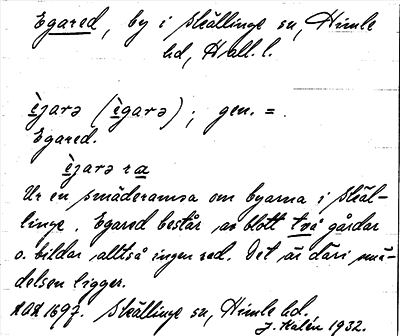 Egared, by i Skällinge sn, Himle
hd, Hall. l.
èʒarə (ègarə); gen. =.
Egared.
èʒarə ra
Ur en smäderamsa om byarna i Skäl-
linge. Egared består av blott två gårdar
o. bildar alltså ingen red. Det är däri smä-
delsen ligger.
1697. Skällinge sn, Himle hd.
J. Kalén 1932.